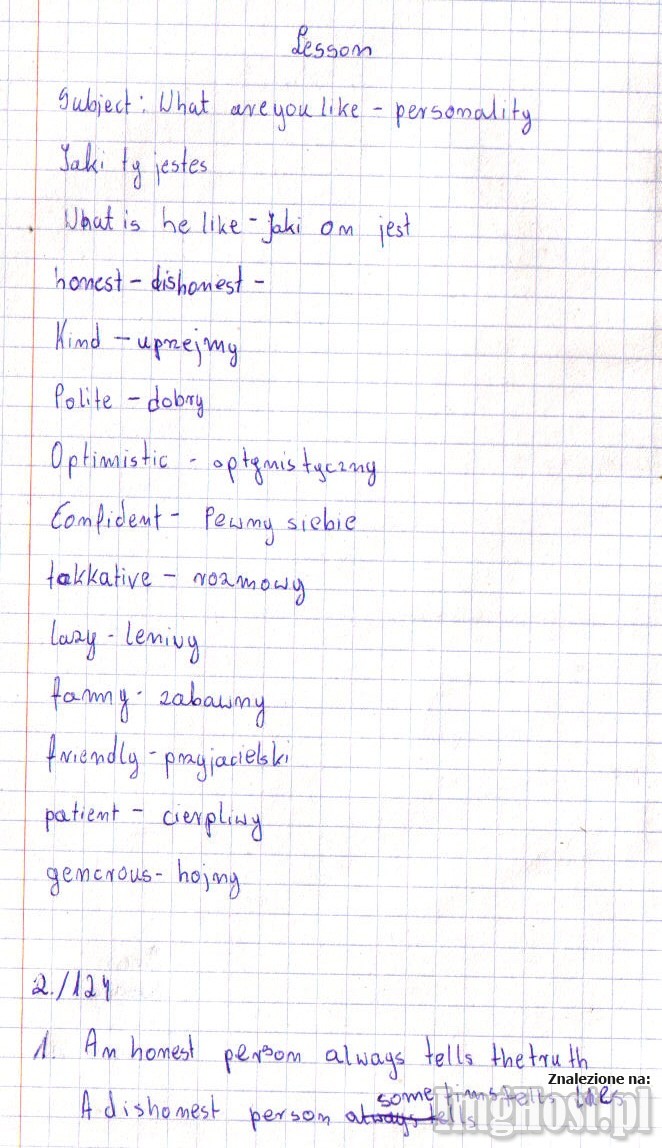 Lesson
Subject: What are you like - personality
Jaki ty jestes
What is he like - Jaki on jest
honest - dishonest -
Kind - uprzejmy
Polite - dobry
Optimistic - optymistyczny
Confident - Pewny siebie
takkative - rozmowy
lazy - lenivy
fanny - zabawny
friendly - przyjacielski
patient - cierpliwy
generous - hojny
2./124
1. An honest person always tells the truth
Znalezione na:
A dishonest person always tells some tims tells lies
ImgHost.pl